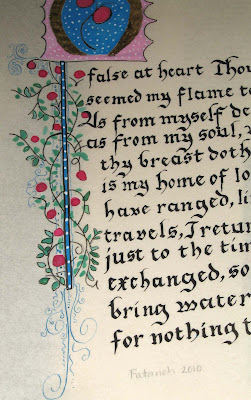 O
false at heart Tho
seemed my flame t
As from myself de
as from my soul,
thy breast doth
is my home of lo
have ranged, li
travels, I retu
just to the tim
exchanged, so
bring water
for nothing t
Fataneh 2010